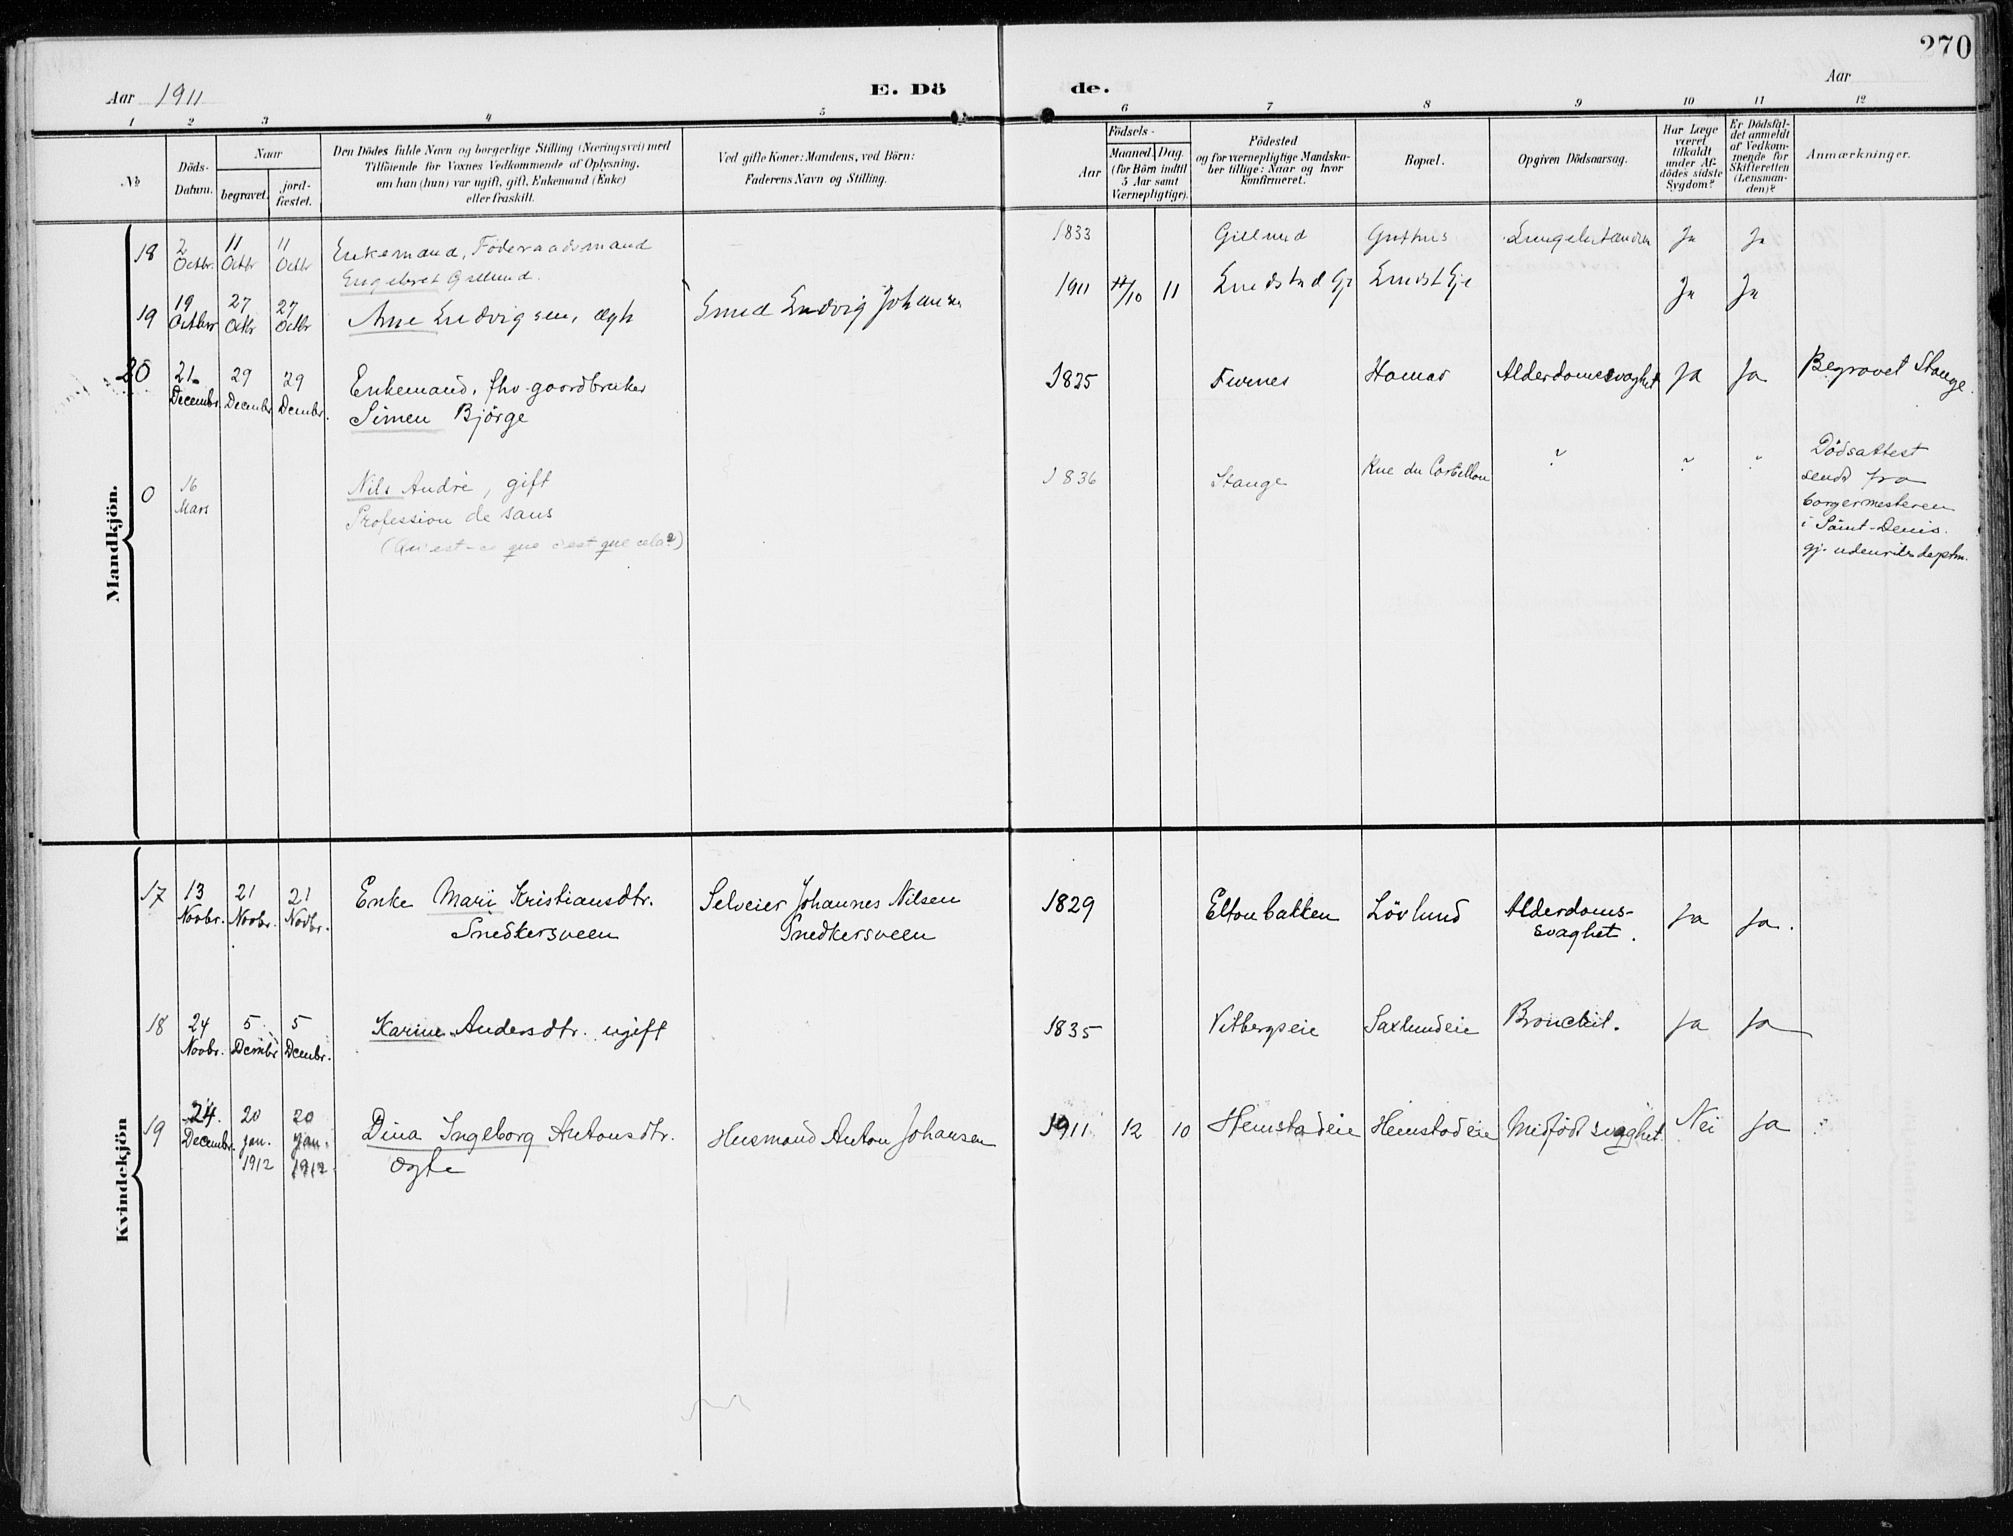 270
Aar 1911
E. Dö
de.
Aar
1 2 3 4 5 6 7 8 9 10 11 12
No
Döds-
Datum.
Naar
begravet.
jord-
fæstet.
Den Dödes fulde Navn og borgerlige Stilling (Næringsvei) med
Tilföiende for Voxnes Vedkommende af Oplysning,
om han (hun) var ugift, gift, Enkemand (Enke)
eller fraskilt.
Ved gifte Koner: Mandens, ved Börn:
Faderens Navn og Stilling.
Aar
Födsels-
Maaned. Dag.
(for Börn indtil
5 Aar samt
Værnepligtige).
Födested
og for værnepligtige Mandska-
ber tillige: Naar og hvor
konfirmeret.
Bopæl.
Opgiven Dödsaarsag.
Har Læge
været
tilkaldt
under Af-
dödes sidste
Sygdom?
Er Dödsfal-
det anmeldt
af Vedkom-
mende for
Skifteretten
(Lensman-
den)?
Anmærkninger.
Mandkjön.
18 2 Octbr. 11 Octbr 11 Octbr Enkemand, Föderaadsmand
Engebret Gillund. 1833 Gillund Ja Ja
19 19 Octbr 27 Octbr 27 Octbr Arne Ludvigsen, ægte Ludvig Johansen 1911 11/10 11 Ja Ja
20 21 Decembr. 29 Decembr 29 Dcembr. Enkemand, fhv gaardbruker
Simen Bjørge 1825 Furnes Hamar Alderdomssvaghet Ja Ja Begravet Stange.
0 16 Mars Nils André, gift
Profession de sans
(Qu'est-ce que c'est que cela?)
1836 Stange Rue du Corbillon
Dödsattest
sendt fra
borgermesteren
i Saint-Denis.
gj. udenriksdeptm.
Kvindekjön
17 13 Novbr. 21 Novbr. 21 Novbr. Enke Mari Kristiansdtr.
Snedkersveen
Selveier Johannes Nilsen
Snedkersveen
1829 Eltonbakken Lövlund Alderdoms-
svaghet. Ja Ja.
18 24 Novbr. 5 Dcembr 5 Dcembr. Karine Andersdtr. ugift 1835 Vitbergseie Saxlundeie Bronchit. Ja Ja
19 24. Decembr. 20 jan. 1912 20 jan. 1912 Dina Ingeborg Antonsdtr.
ægte
Husmand Anton Johansen 1911 12 10 Hemstadeie Hemstadeie Medfödt svaghet Nei Ja